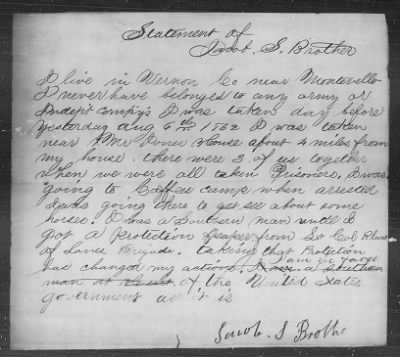 Statement of
Jacob. S. Brother
I live in Vernon Co near Montevallo
I never have belonged to any army or
Indept compy's I was taken day before
yesterday aug 6th 1862 I was taken
near Mr Jones House about 4 miles from
my house. there were 3 of us together
when we were all taken Prisoners. I was
going to camp when arrested
I was going there to get see about some
horses. I was a Southern man until I
got a Protection paper from Lt Col
of Brigade. taking that Protection
has changed my actions. I am in favor
man at of the United States
government as it is
Jacob. S Brothe